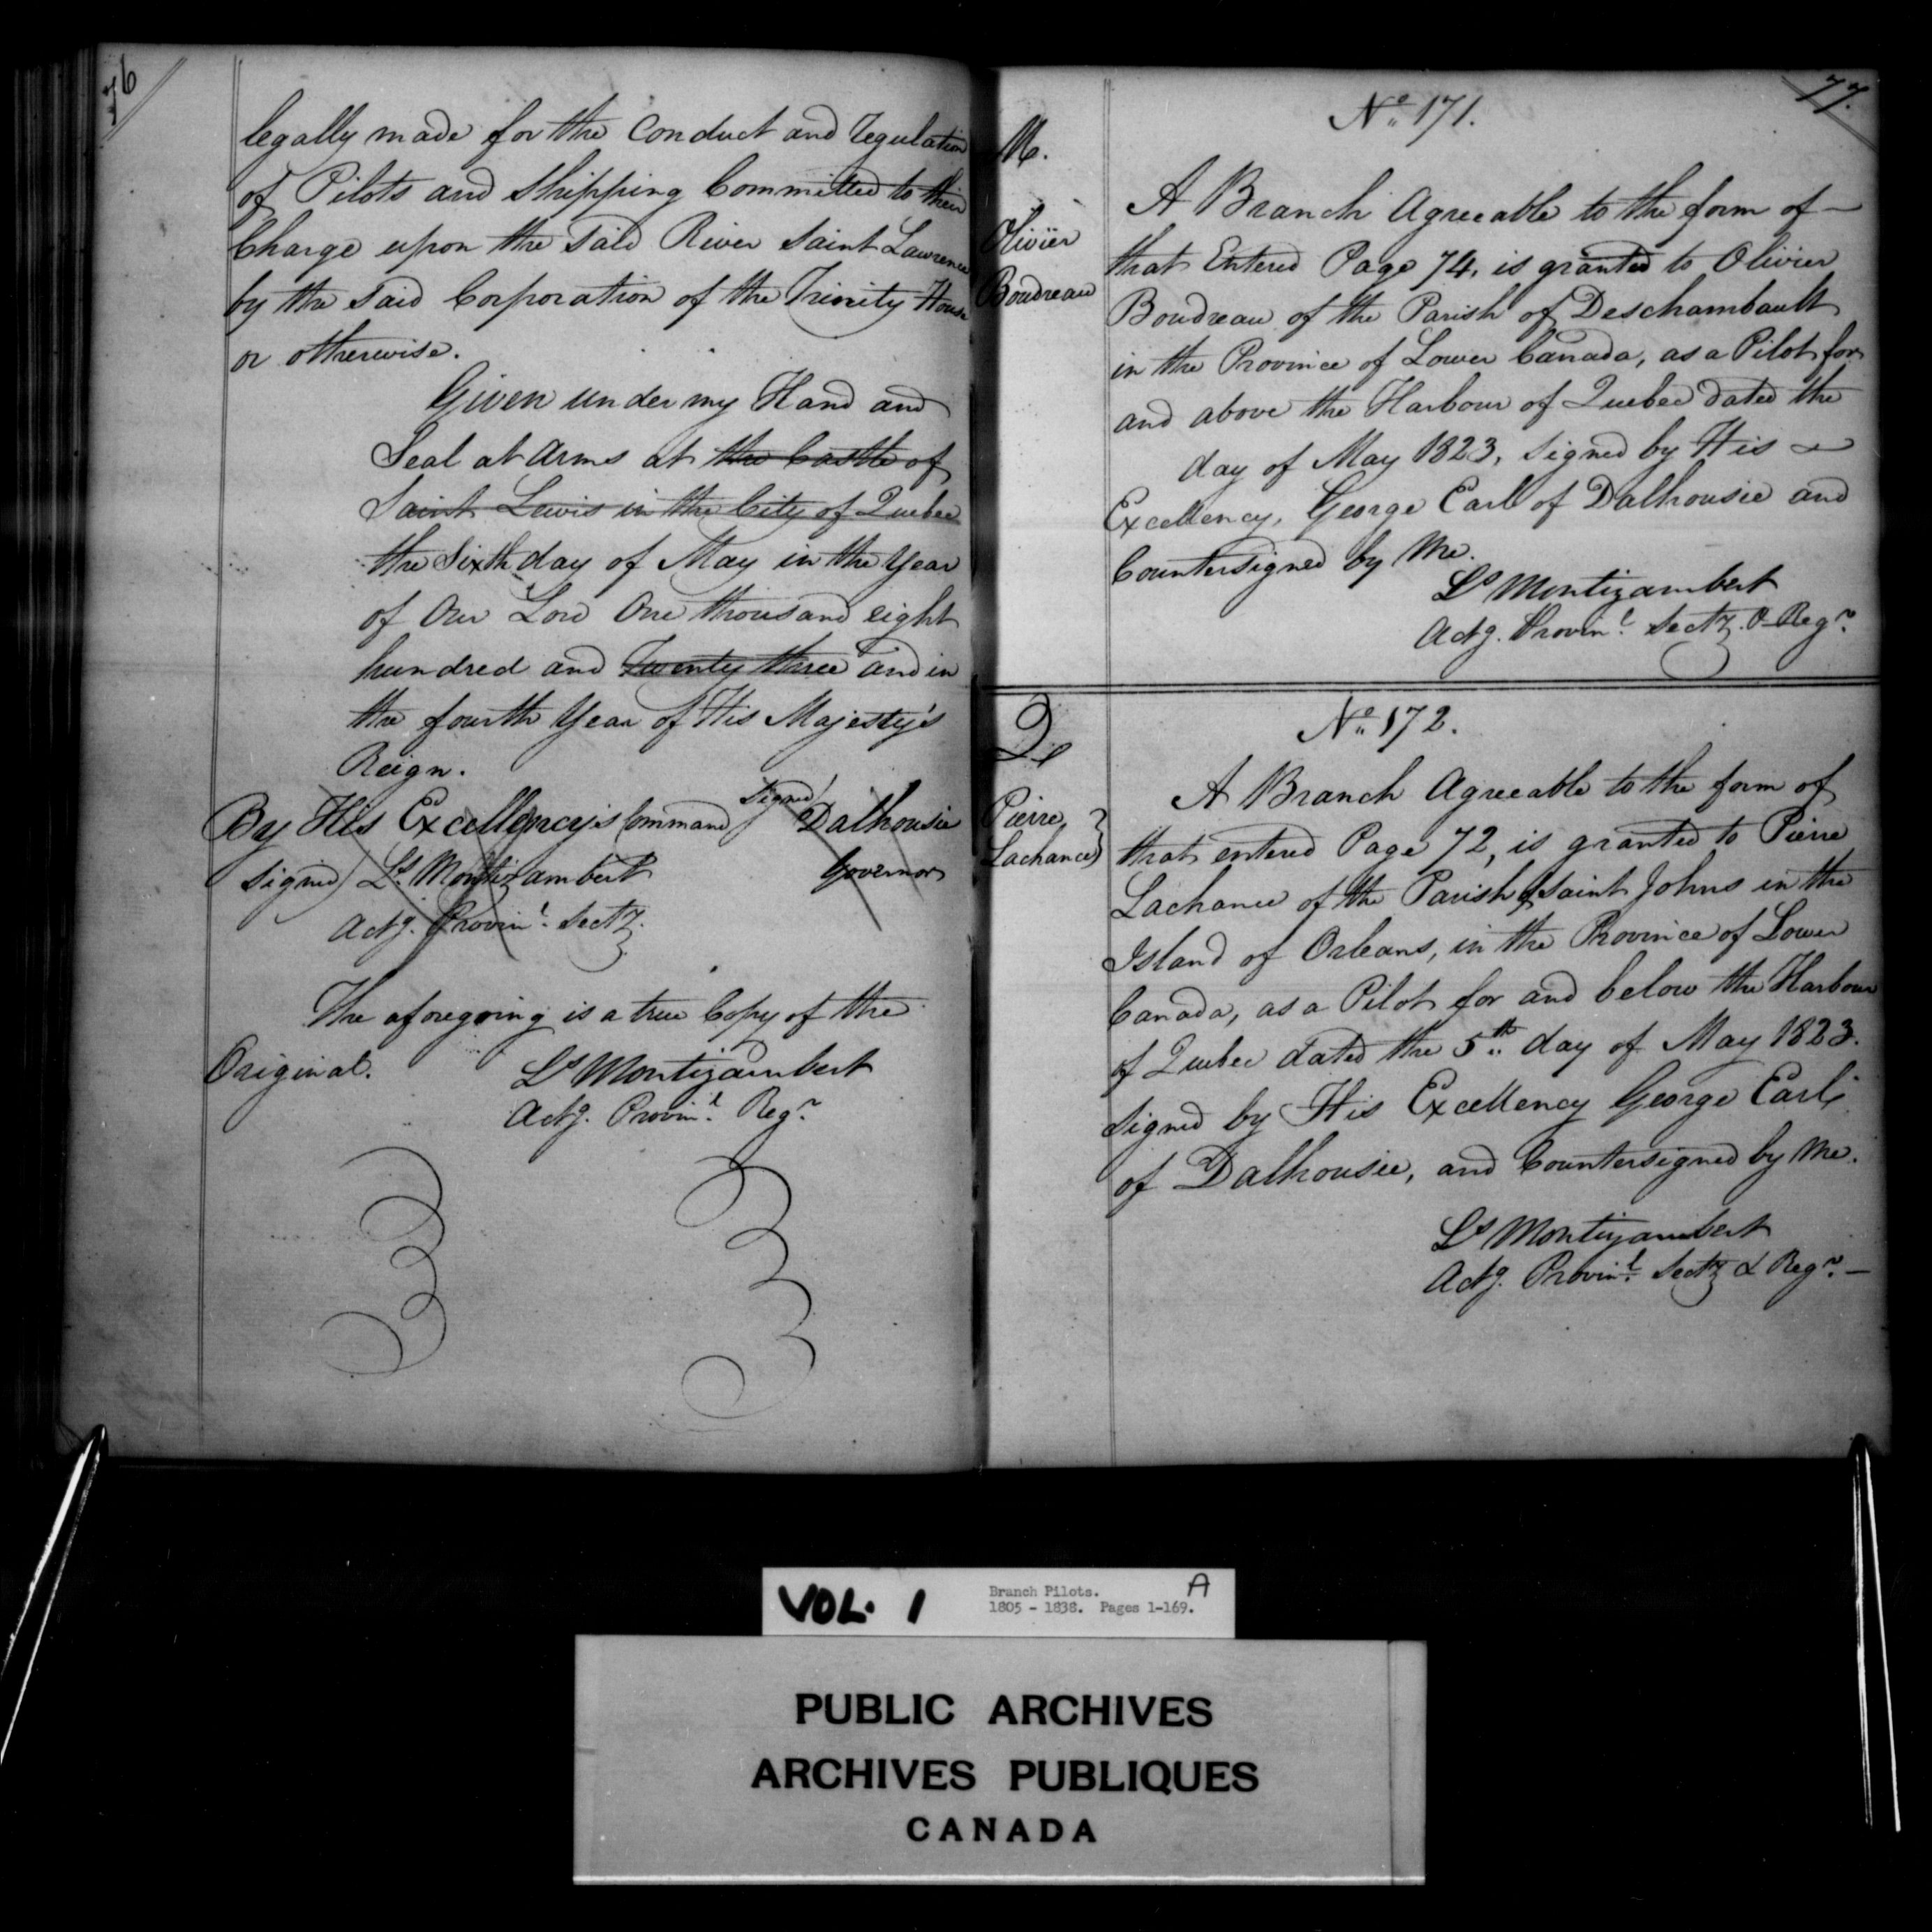 76
legally made for the Conduct and regulation
of Pilots and Shipping Committed to their
Charge upon the Said River Saint Lawrence
by the Said Corporation of the Trinity House
or otherwise.
Given under my Hand and
Seal at Arms at the Castle of
Saint Lewis in the City of Quebec
the Sixth day of May in the Year
of Our Lord One thousand eight
hundred and Twenty three and in
the fourth Year of His Majesty's
Reign.
Signed) Dalhousie
By His Excellency's Command
Governor
Signed) Ls. Montizambert
Actg. Provinl. Secty.
The aforegoing is a true Copy of the
Original.
Ls Montizambert
Actg. Provinl. Regr.
77.
No. 171.
M.
Olivier
Boudreau
A Branch Agreeable to the form of —
that Entered Page 74, is granted to Olivier
Boudreau of the Parish of Deschambault
in the Province of Lower Canada, as a Pilot for
and above the Harbour of Quebec dated the
day of May 1823, Signed by His
Excellency, George Earl of Dalhousie and
Countersigned by Me.
Ls Montizambert
Actg. Provinl. Secty. & Regr.
No. 172.
Pierre
Lachance
A Branch Agreeable to the form of
that entered Page 72, is granted to Pierre
Lachance of the Parish of Saint Johns in the
Island of Orleans, in the Province of Lower
Canada, as a Pilot for and below the Harbour
of Quebec dated the 5th. day of May 1823.
Signed by His Excellency George Earl
of Dalhousie, and Countersigned by Me.
Ls Montizambert
Actg. Provinl. Secty & Regr. —
VOL. 1
Branch Pilots.
1805 - 1838. Pages 1-169.
A
PUBLIC ARCHIVES
ARCHIVES PUBLIQUES
CANADA